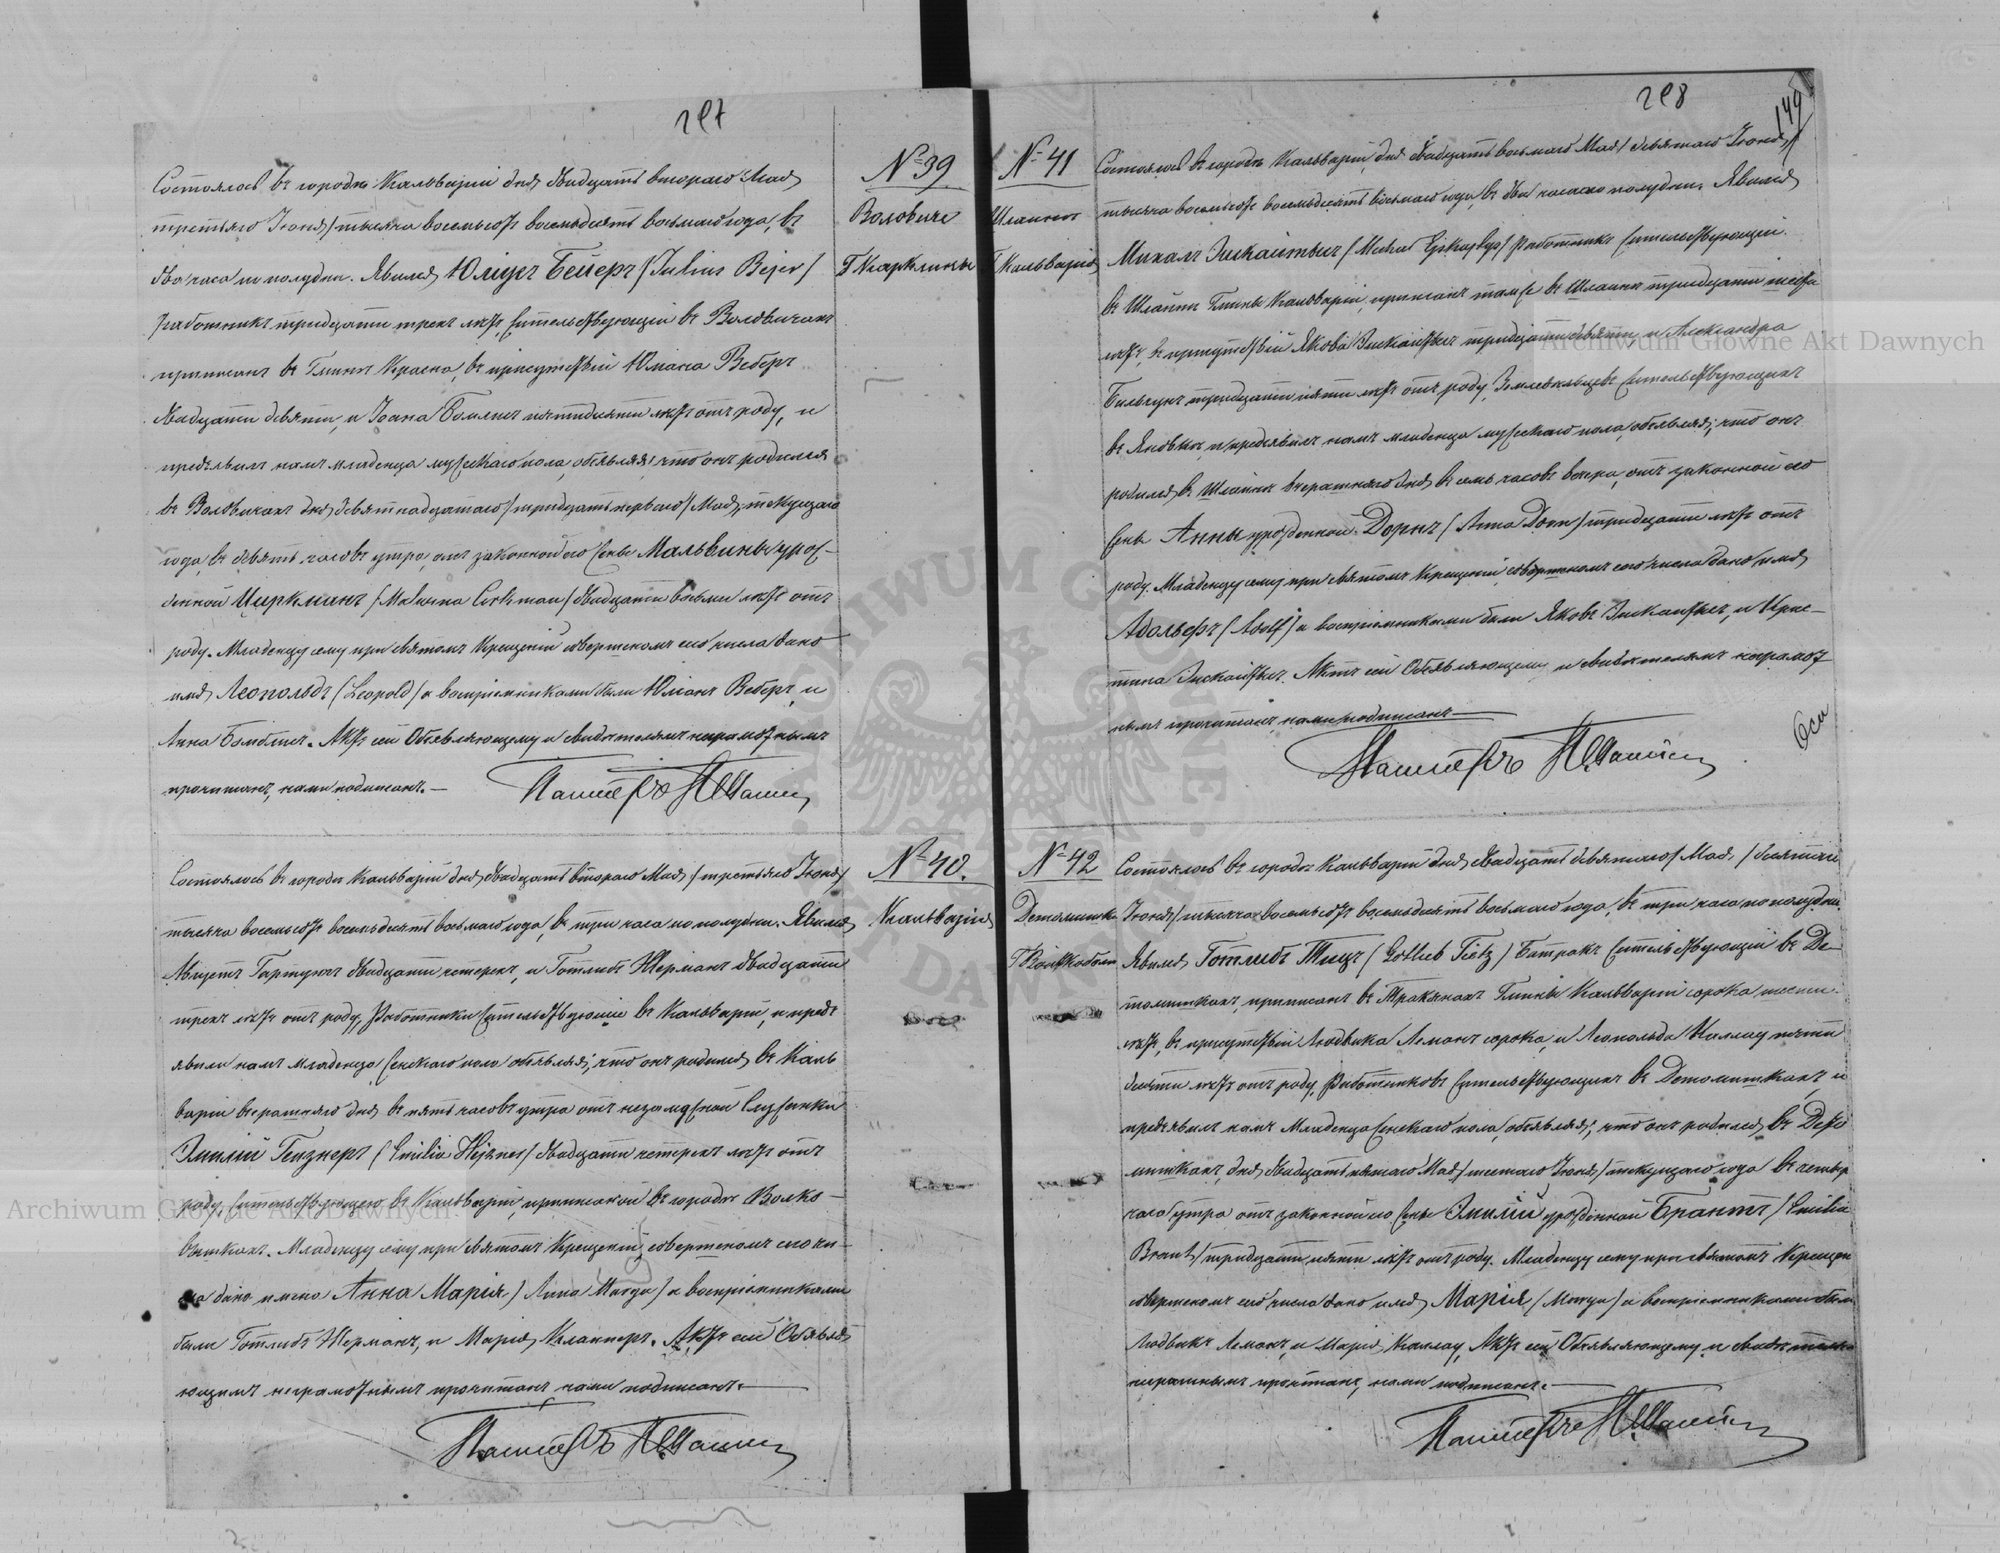 297
№ 39
Воловиче
Г. Карклины
Состоялось въ городѣ Кальваріи дня двадцать втораго Мая
/третьяго Іюня/ тысяча восемьсотъ восемьдесятъ восьмаго года, въ
два часа по полудни. Явился Юліусъ Бейеръ /Julius Bejer/
работникъ тридцати трехъ лѣтъ, жительствующій въ Воловичахъ
приписанъ въ Гминѣ Красна, въ присутствіи Юліана Веберъ
двадцати девяти, и Іоана пятидесяти лѣтъ отъ роду, и
предъявилъ намъ младенца мужескаго пола, объявляя; что онъ родился
въ Воловичахъ дня девятнадцатаго /тридцать перваго/ Мая, текущаго
года, въ девять часовъ утра, отъ законной его жены Мальвины урож-
денной Циркманъ /Malwina Cirkman/ двадцати восьми лѣтъ отъ
роду. Младенцу сему при святомъ Крещеніи совершеномъ сего числа дано
имя Леопольдъ /Leopold/ а воспріемниками были Юліанъ Веберъ, и
Анна. Актъ сей Объявляющему и свидѣтелямъ неграмотнымъ
прочитанъ, нами подписанъ.—
Пасторъ
№ 40.
Кальварія
Состоялось въ городѣ Кальваріи дня двадцать втораго Мая /третьяго Іюня/
тысяча восемьсотъ восемьдесятъ восьмаго года, въ три часа по полудни. Явился
Августъ Гартунгъ двадцати четерехъ, и Готлибъ Жерманъ двадцати
трехъ лѣтъ отъ роду, Работники жительствующіе въ Кальваріи, и предъ
явили намъ младенца женскаго пола объявляя; что онъ родился въ Каль
варіи вчерашняго дня въ пять часовъ утра отъ незамужной Служанки
Эмиліи Гейзнеръ /Emilia Hejzner/ двадцати четерехъ лѣтъ отъ
роду, жительствующею въ Кальваріи, приписаной въ городѣ Волко-
вышкахъ. Младенцу сему при святомъ Крещеніи совершеномъ сего чи-
сла дано имена Анна Марія /Anna Marya/ а воспріемниками
были Готлибъ Жерманъ, и Марія Клапперъ. Актъ сей Объявля
ющимъ неграмотнымъ прочитанъ нами подписанъ.—
Пасторъ
298
149
№ 41
Шланы
Г. Кальварія
Состоялось въ городѣ Кальваріи, дня двадцать восьмаго Мая /девятаго Іюня/
тысяча восемьсотъ восемьдесятъ восьмаго года, въ два часа по полудни. Явился
Михалъ /Michał/ работникъ жительствующій
въ Гмины Кальварія, приписанъ тамже въ тридцати шести
лѣтъ, въ присутствіи Якова тридцати девяти, и Александра
тридцати пяти лѣтъ отъ роду, Земледѣльцевъ жительствующихъ
въ, и предъявилъ намъ младенца мужескаго пола, объявляя; что онъ
родился въ вчерашняго дня въ семь часовъ вечера, отъ законной его
жены Анны урожденной Дорнъ /Anna Dorn/ тридцати лѣтъ отъ
роду. Младенцу сему при святомъ Крещеніи совершеномъ сего числа дано имя
Адольфъ /Adolf/ а воспріемниками были Яковъ, и Крис-
тина. Актъ сей Объявляющему и свидѣтелямъ неграмот
нымъ прочитанъ, нами подписанъ—
Пасторъ
№ 42
Детомишки
Состоялось въ городѣ Кальваріи дня двадцать девятаго Мая, /десятаго
Іюня/ тысяча восемьсотъ восемьдесятъ восьмаго года, въ три часа по полудни.
Явился Готлибъ Тицъ /Gotlieb Tietz/ Батракъ жительствующій въ Де-
томишкахъ, приписанъ въ Тракянахъ Гмины Кальваріи сорока шести
лѣтъ, въ присутствіи Людвика Леманъ сорока, и Леопольда Каллау пяти
десяти лѣтъ отъ роду, Работниковъ жительствующихъ въ Детомишкахъ, и
предъявилъ намъ младенца женскаго пола, объявляя; что онъ родился въ Дето
мишкахъ, дня двадцать пятаго Мая /шестаго Іюня/ текущаго года въ четыр
часа утра отъ законной его жены Эмиліи урожденной Брантъ /Emilia
Brant/ тридцати пяти лѣтъ отъ роду. Младенцу сему при святомъ Крещен
совершеномъ сего числа дано имя Марія /Marya/ а воспріемниками были
Людвикъ Леманъ, и Марія Каллау. Актъ сей Объявляющему и свидѣтелямъ
неграмнымъ прочтанъ, нами подписанъ.—
Пасторъ
Archiwum Główne Akt Dawnych
Archiwum Główne Akt Dawnych
ARCHIWUM GŁÓWNE AKT DAWNYCH